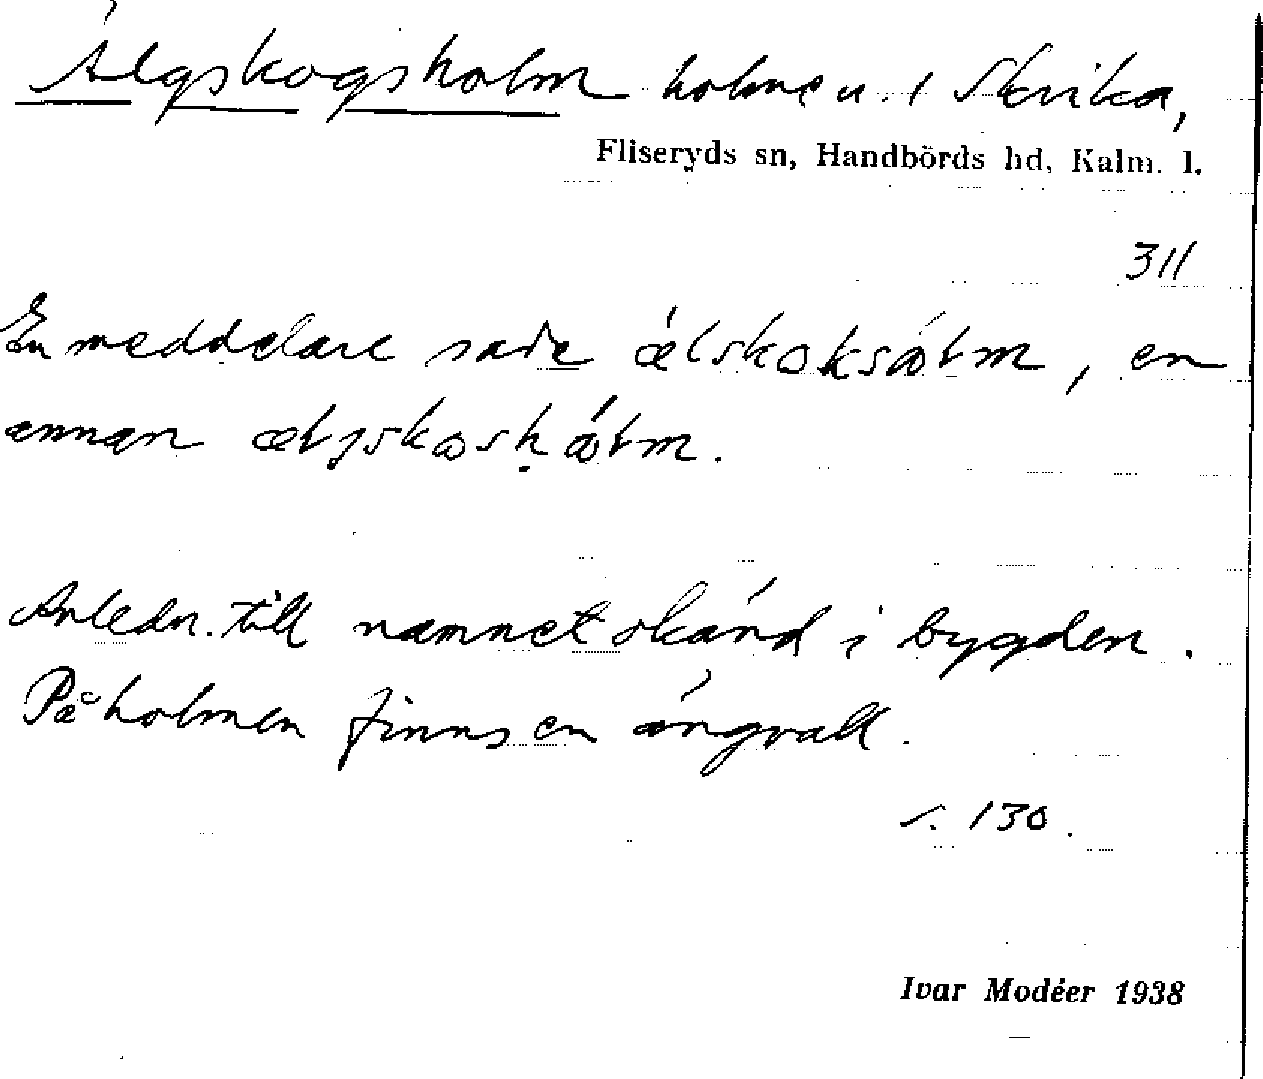 Älgskogsholm holme u. / Skrika,
Fliseryds sn, Handbörds hd, Kalm. l.
311
En meddelare sade ælskoksåłm, en
annan ætjskoskåłm.
Anledn. till namnet okänd i bygden.
På holmen finns en ängvall.
s. 130.
Ivar Modéer 1938